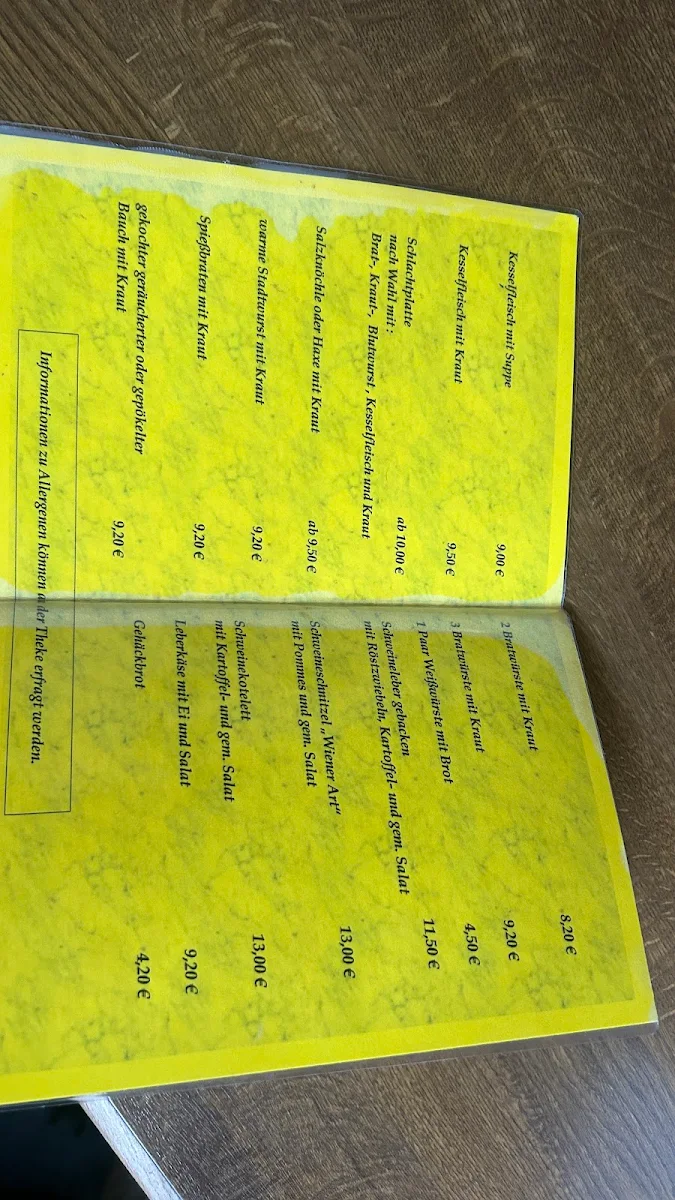 Kesselfleisch mit Suppe 9,00 €
Kesselfleisch mit Kraut 9,50 €
Schlachtplatte
nach Wahl mit : ab 10,00 €
Brat-, Kraut-, Blutwurst , Kesselfleisch und Kraut
Salzknöchle oder Haxe mit Kraut ab 9,50 €
warme Stadtwurst mit Kraut 9,20 €
Spießbraten mit Kraut 9,20 €
gekochter geräucherter oder gepökelter
Bauch mit Kraut 9,20 €
2 Bratwürste mit Kraut 8,20 €
3 Bratwürste mit Kraut 9,20 €
1 Paar Weißwürste mit Brot 4,50 €
Schweineleber gebacken
mit Röstzwiebeln, Kartoffel- und gem. Salat 11,50 €
Schweineschnitzel „Wiener Art“
mit Pommes und gem. Salat 13,00 €
Schweinekotelett
mit Kartoffel- und gem. Salat 13,00 €
Leberkäse mit Ei und Salat 9,20 €
Gehäckbrot 4,20 €
Informationen zu Allergenen können a der Theke erfragt werden.